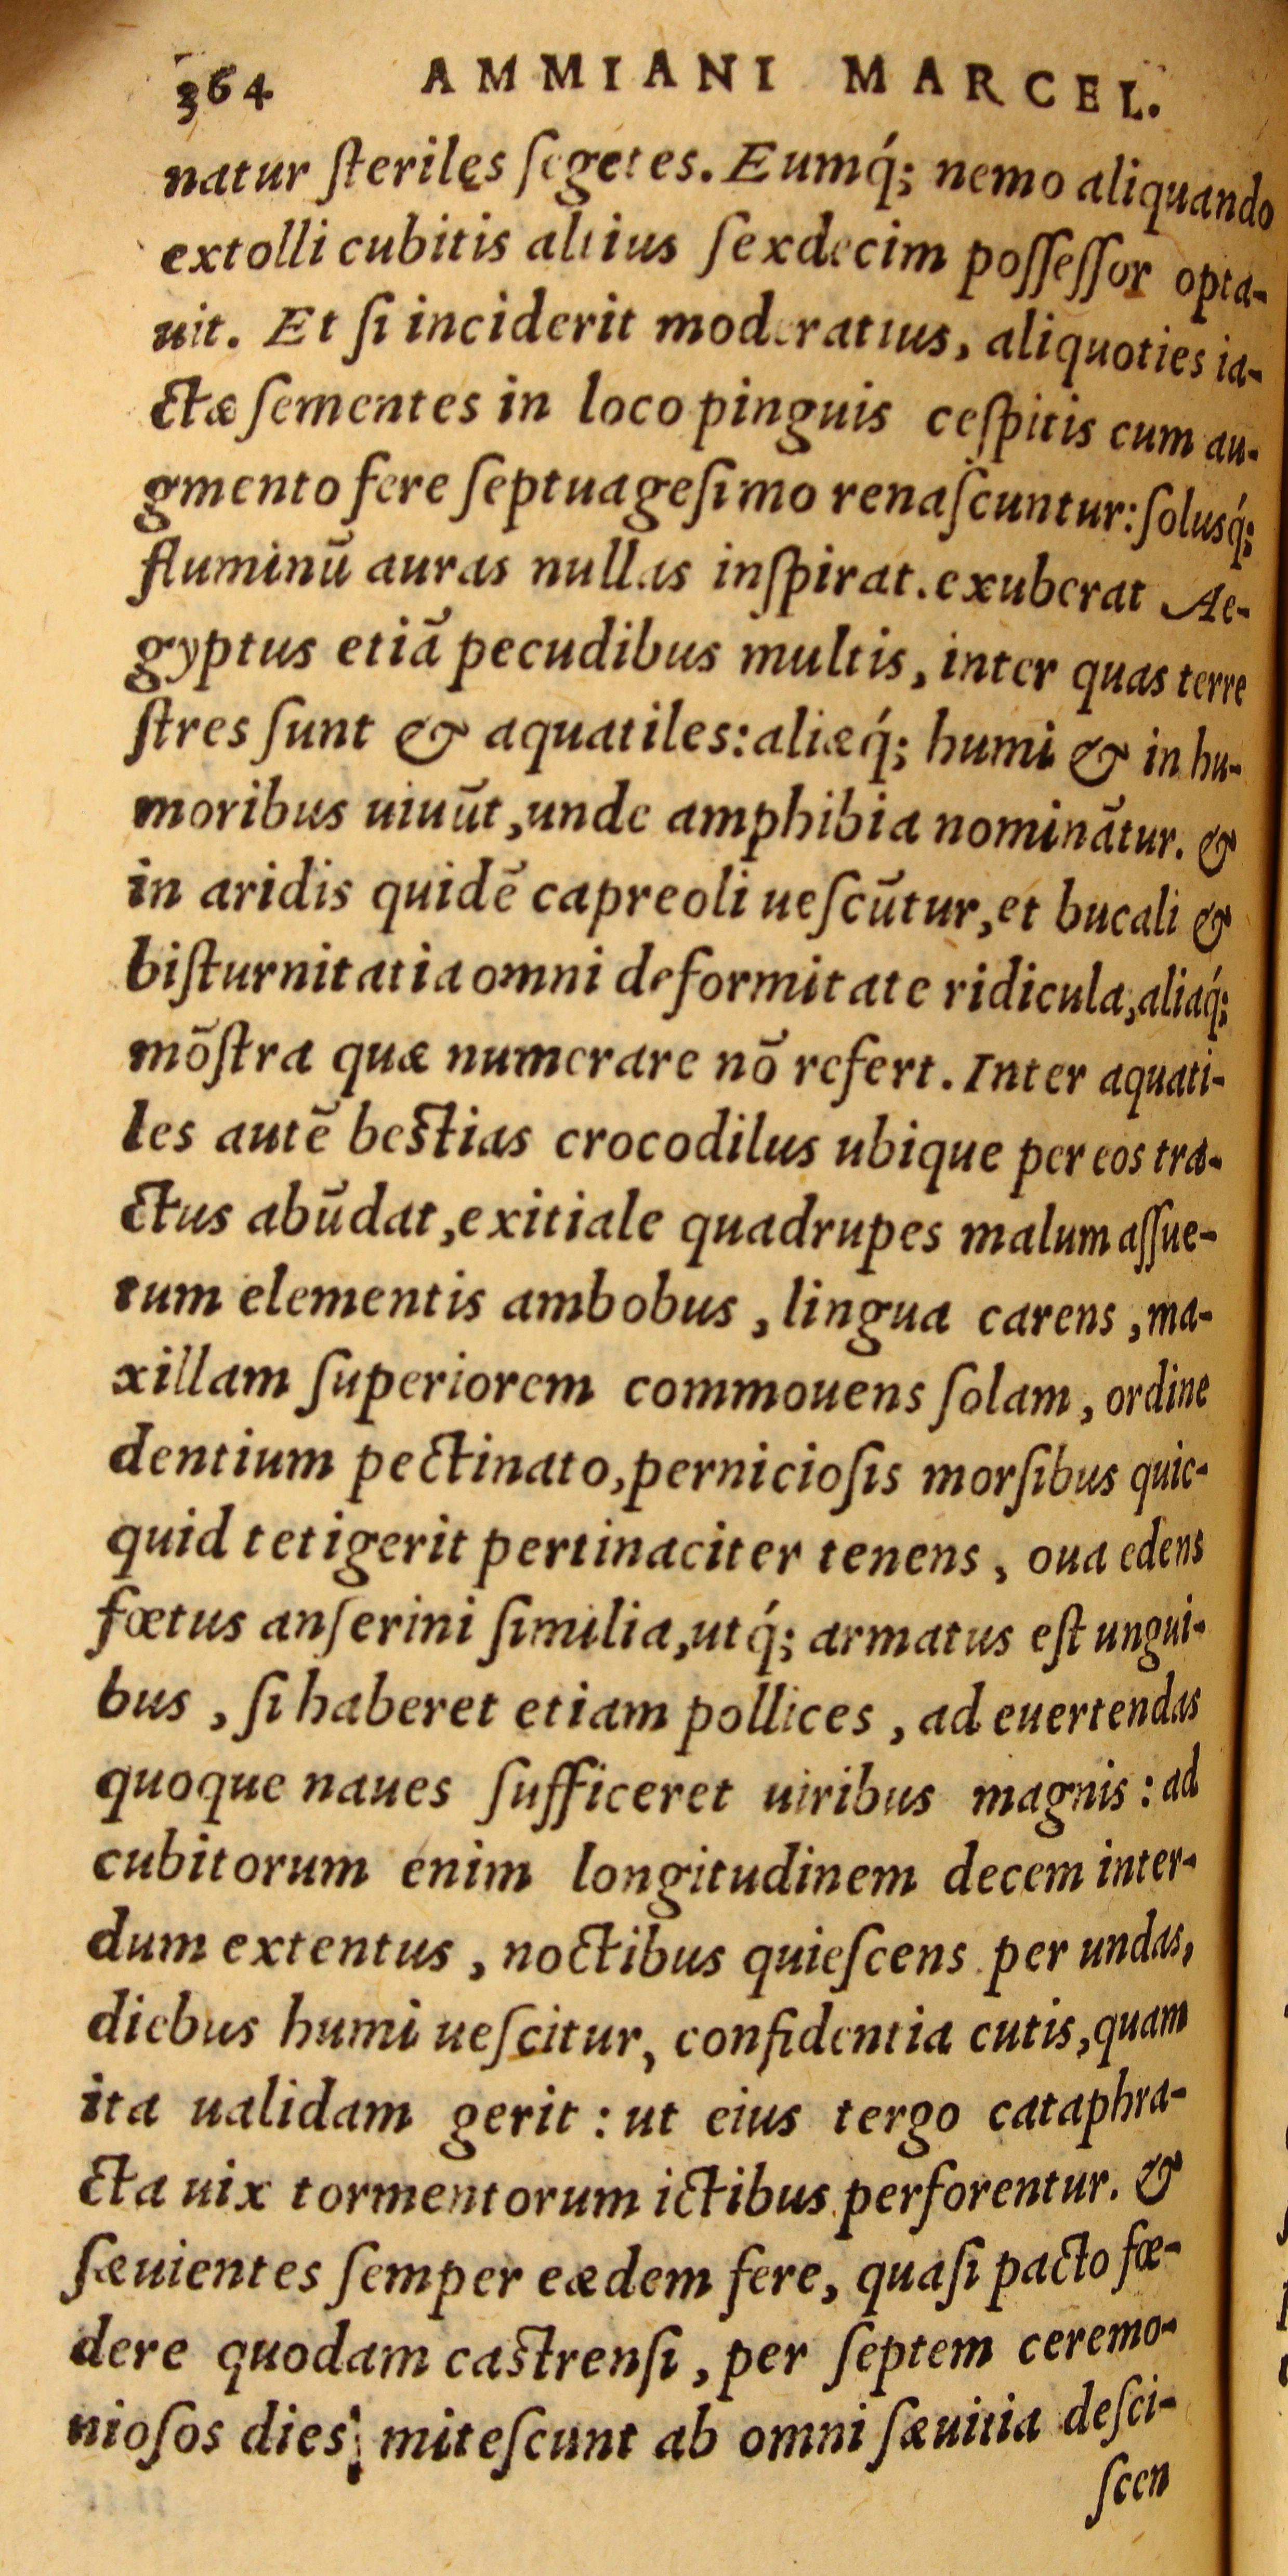 364 AMMIANI MARCEL.
natur ſteriles ſegetes. Eumq́; nemo aliquando
extolli cubitis altius ſexdecim poſſeſſor opta-
uit. Et ſi inciderit moderatius, aliquoties ia-
ctæ ſementes in loco pinguis ceſpitis cum au-
gmento fere ſeptuageſimo renaſcuntur: ſolusq́;
fluminū auras nullas inſpirat. exuberat Ae-
gyptus etiā pecudibus multis, inter quas terre
ſtres ſunt & aquatiles: aliæq́; humi & in hu-
moribus uiuūt, unde amphibia nominātur. &
in aridis quidē capreoli ueſcūtur, et bucali &
biſturnitatia omni deformitate ridicula, aliaq́;
mōſtra quæ numerare nō refert. Inter aquati-
les autē beſtias crocodilus ubique per eos tra-
ctus abūdat, exitiale quadrupes malum aſſue-
tum elementis ambobus, lingua carens, ma-
xillam ſuperiorem commouens ſolam, ordine
dentium pectinato, pernicioſis morſibus quic-
quid tetigerit pertinaciter tenens, oua edens
fœtus anſerini ſimilia, utq́; armatus eſt ungui-
bus, ſi haberet etiam pollices, ad euertendas
quoque naues ſufficeret uiribus magnis: ad
cubitorum enim longitudinem decem inter-
dum extentus, noctibus quieſcens per undas,
diebus humi ueſcitur, confidentia cutis, quam
ita ualidam gerit: ut eius tergo cataphra-
cta uix tormentorum ictibus perforentur. &
ſæuientes ſemper eædem fere, quaſi pacto fœ-
dere quodam caſtrenſi, per ſeptem ceremo-
nioſos dies; miteſcunt ab omni ſæuitia deſci-
ſcen